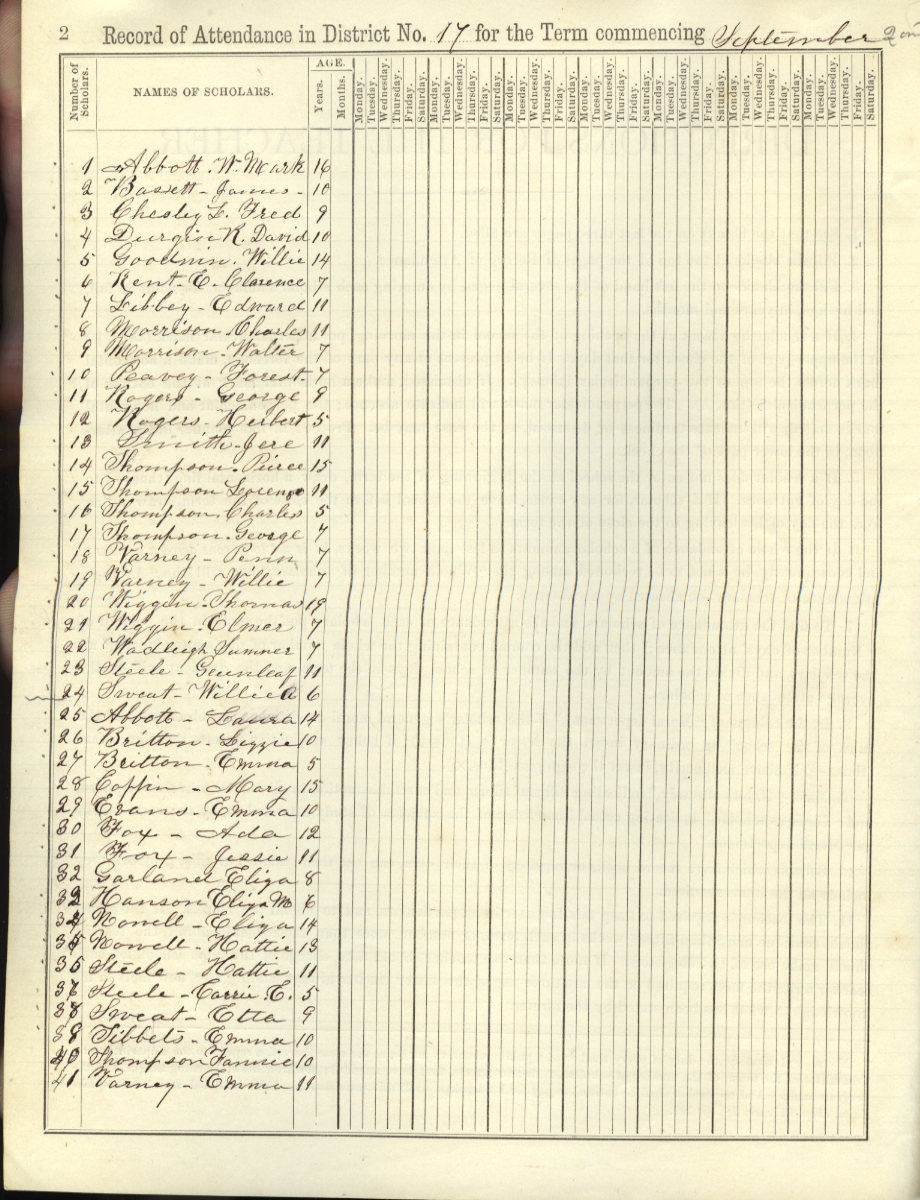 2 Record of Attendance in District No. 17 for the Term commencing September 2
Number of Scholars. NAMES OF SCHOLARS. AGE. Years. Months. Monday. Tuesday. Wednesday. Thursday. Friday. Saturday. Monday. Tuesday. Wednesday. Thursday. Friday. Saturday. Monday. Tuesday. Wednesday. Thursday. Friday. Saturday. Monday. Tuesday. Wednesday. Thursday. Friday. Saturday. Monday. Tuesday. Wednesday. Thursday. Friday. Saturday. Monday. Tuesday. Wednesday. Thursday. Friday. Saturday. Monday. Tuesday. Wednesday. Thursday. Friday. Saturday.
1 Abbott. W. Mark 16
2 Bassett - James - 10
3 Chesley L. Fred 9
4 Durgin K. David 10
5 Goodwin. Willie 14
6 Kent - E. Clarence 7
7 Libbey - Edward 11
8 Morrison Charles 11
9 Morrison. Walter 7
10 Peavey - Forest. 7
11 Rogers - George 9
12 Rogers. Herbert 5
13 Smith. Jere 11
14 Thompson. Pierce 15
15 Thompson Lorenzo 11
16 Thompson. Charles 5
17 Thompson. George 7
18 Varney - Penn 7
19 Varney - Willie 7
20 Wiggin. Thomas 19
21 Wiggin. Elmer 7
22 Wadleigh Sumner 7
23 Steele - Greenleaf 11
24 Sweat - Willie A 6
25 Abbott - Laura 14
26 Britton. Lizzie 10
27 Britton. Emma 5
28 Coffin - Mary 15
29 Evans. Emma 10
30 Fox - Ada 12
31 Fox - Jessie 11
32 Garland Eliza 8
33 Hanson Eliza M 6
34 Nowell - Eliza 14
35 Nowell - Hattie 13
36 Steele - Hattie 11
37 Steele - Carrie. E. 5
38 Sweat - Etta 9
39 Tibbets - Emma 10
40 Thompson Fannie 10
41 Varney - Emma 11